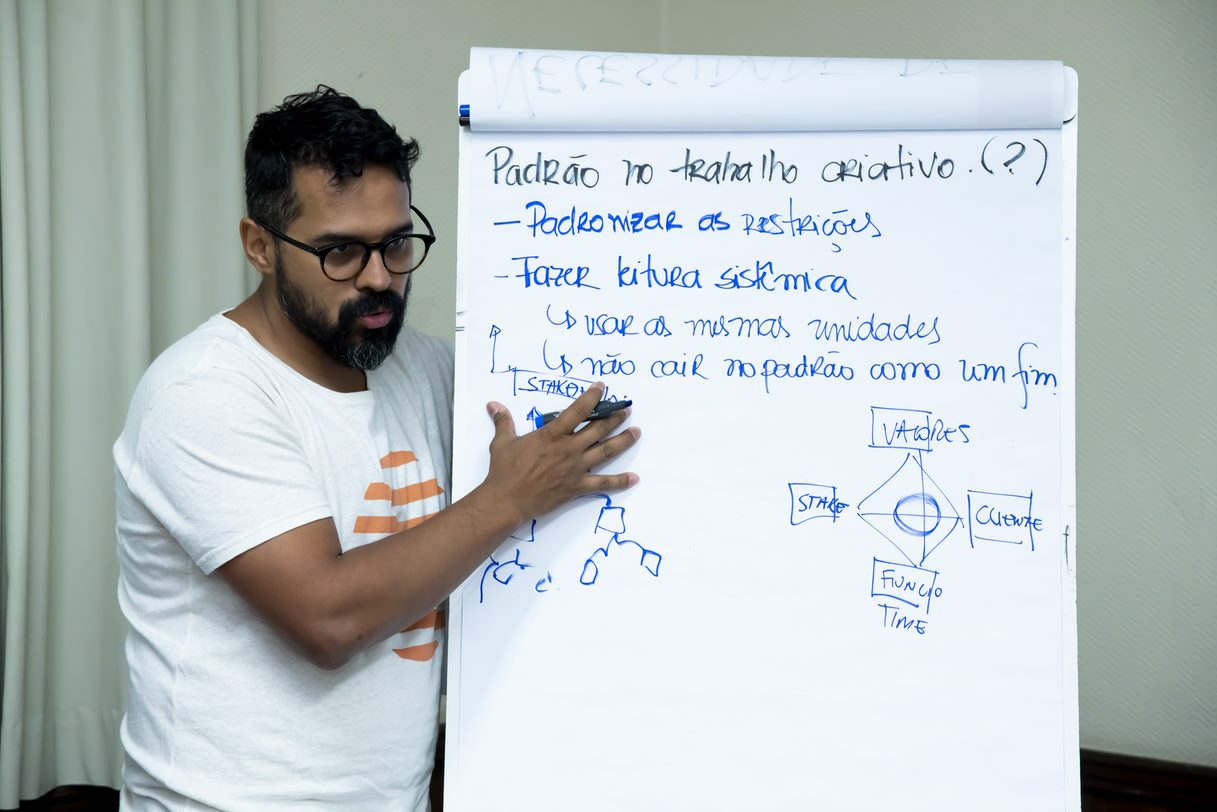 NECESSIDADE DE
Padrão no trabalho criativo. (?)
- Padronizar as restrições
- Fazer leitura sistêmica
↳ usar as mesmas unidades
↳ não cair no padrão como um fim
VALORES
STAKE
CLIENTE
TIME